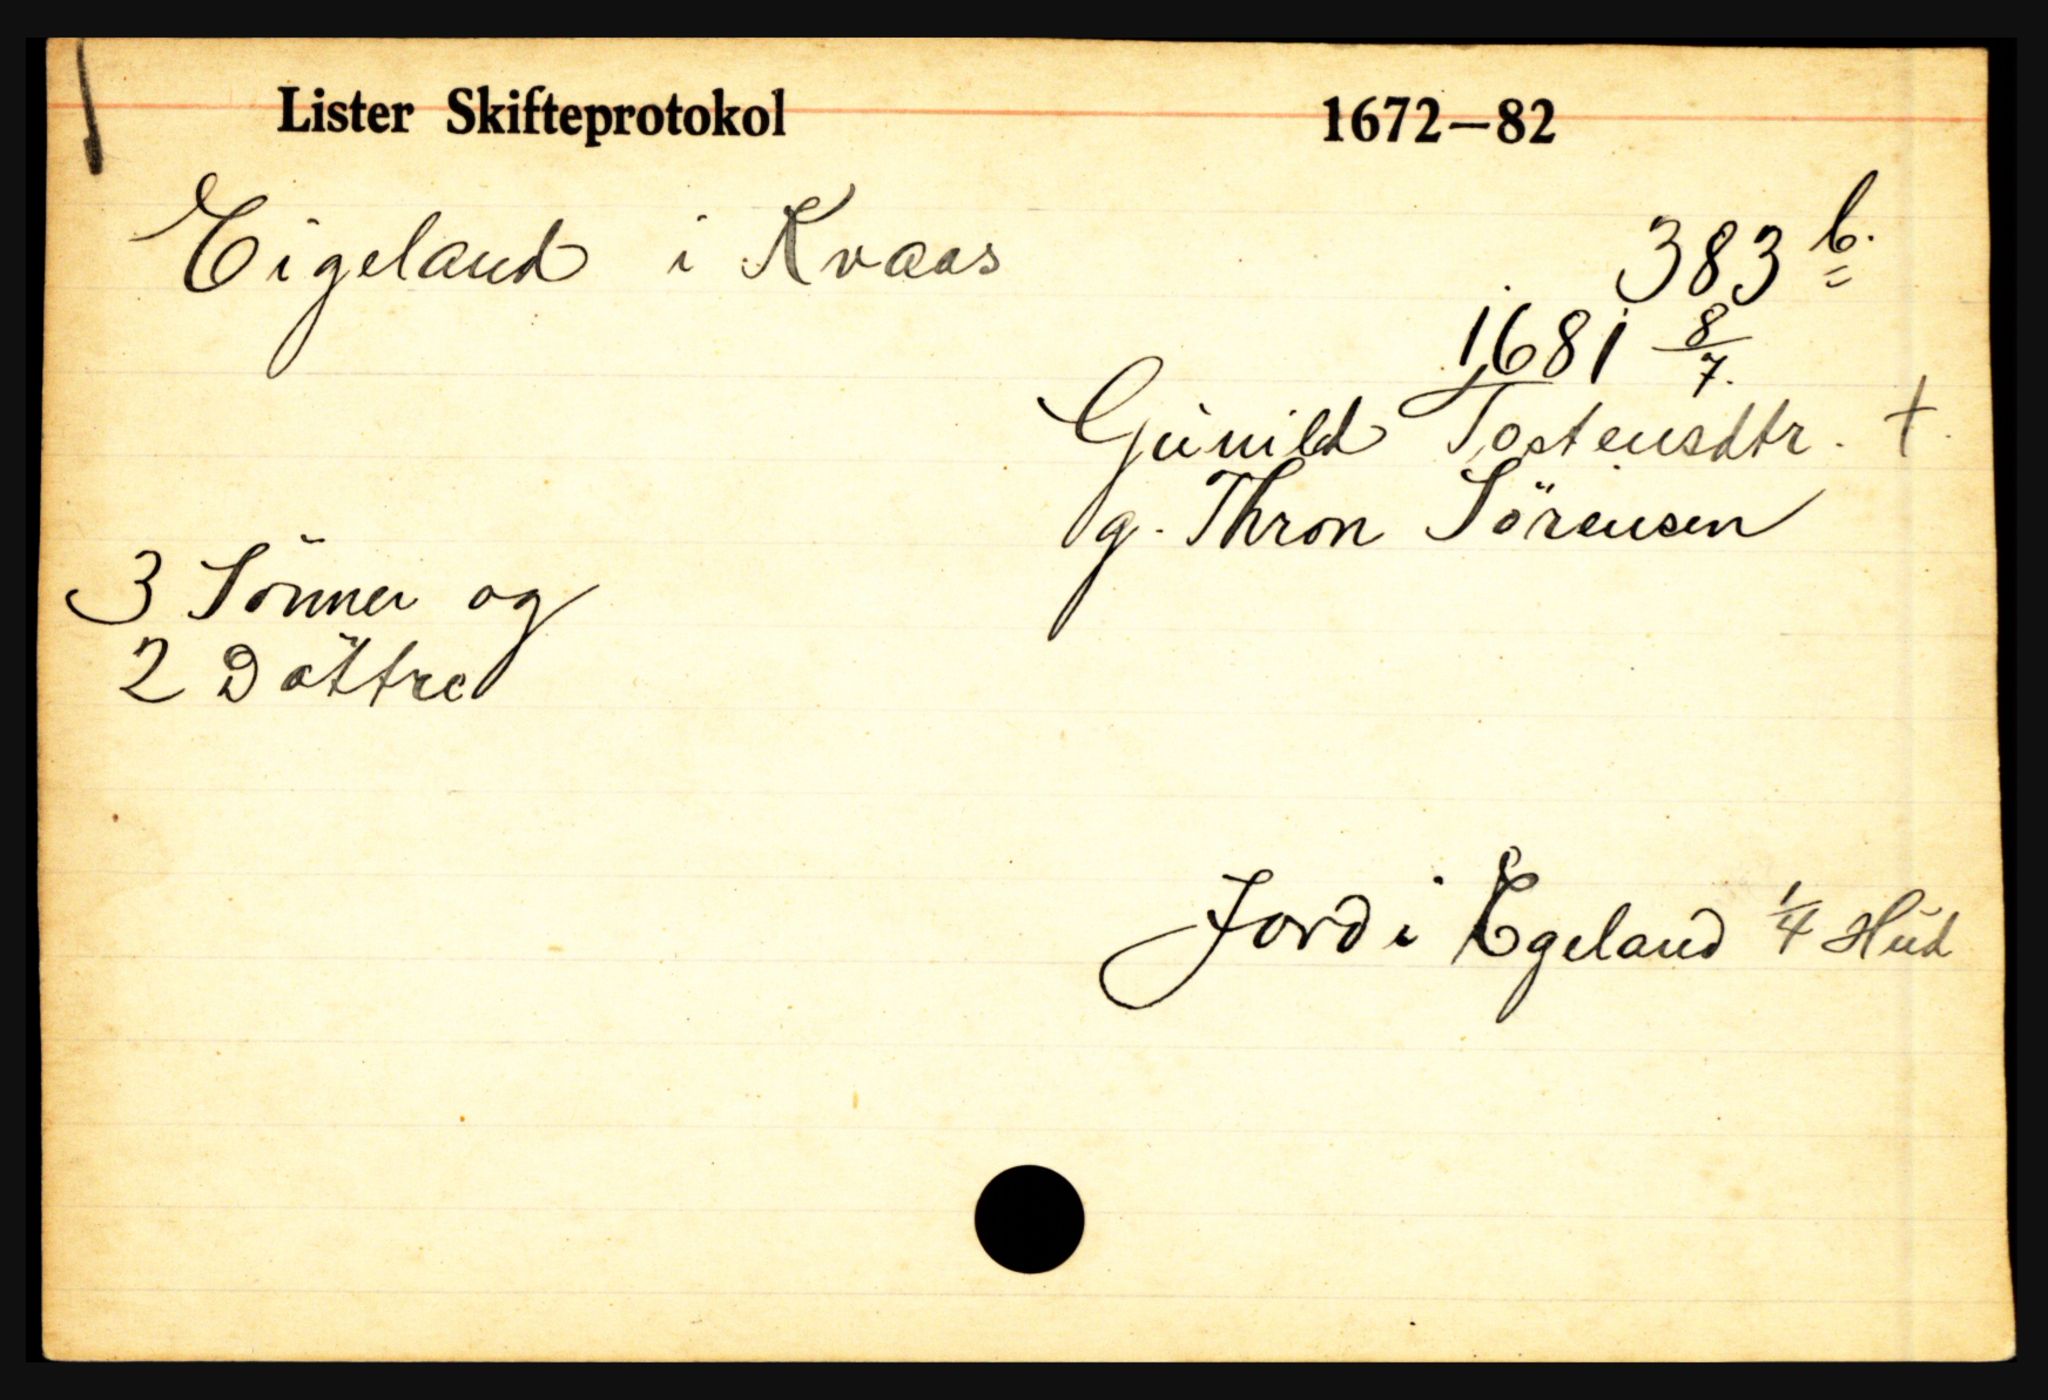 Lister Skifteprotokol 1672—82
Eigeland i Kvaas
383 b.
1681 8/7.
Gunild Tostensdtr. †.
g. Thron Sörensen
3 Sönner og
2 Döttre
Jord i Egeland 1/4 Hud